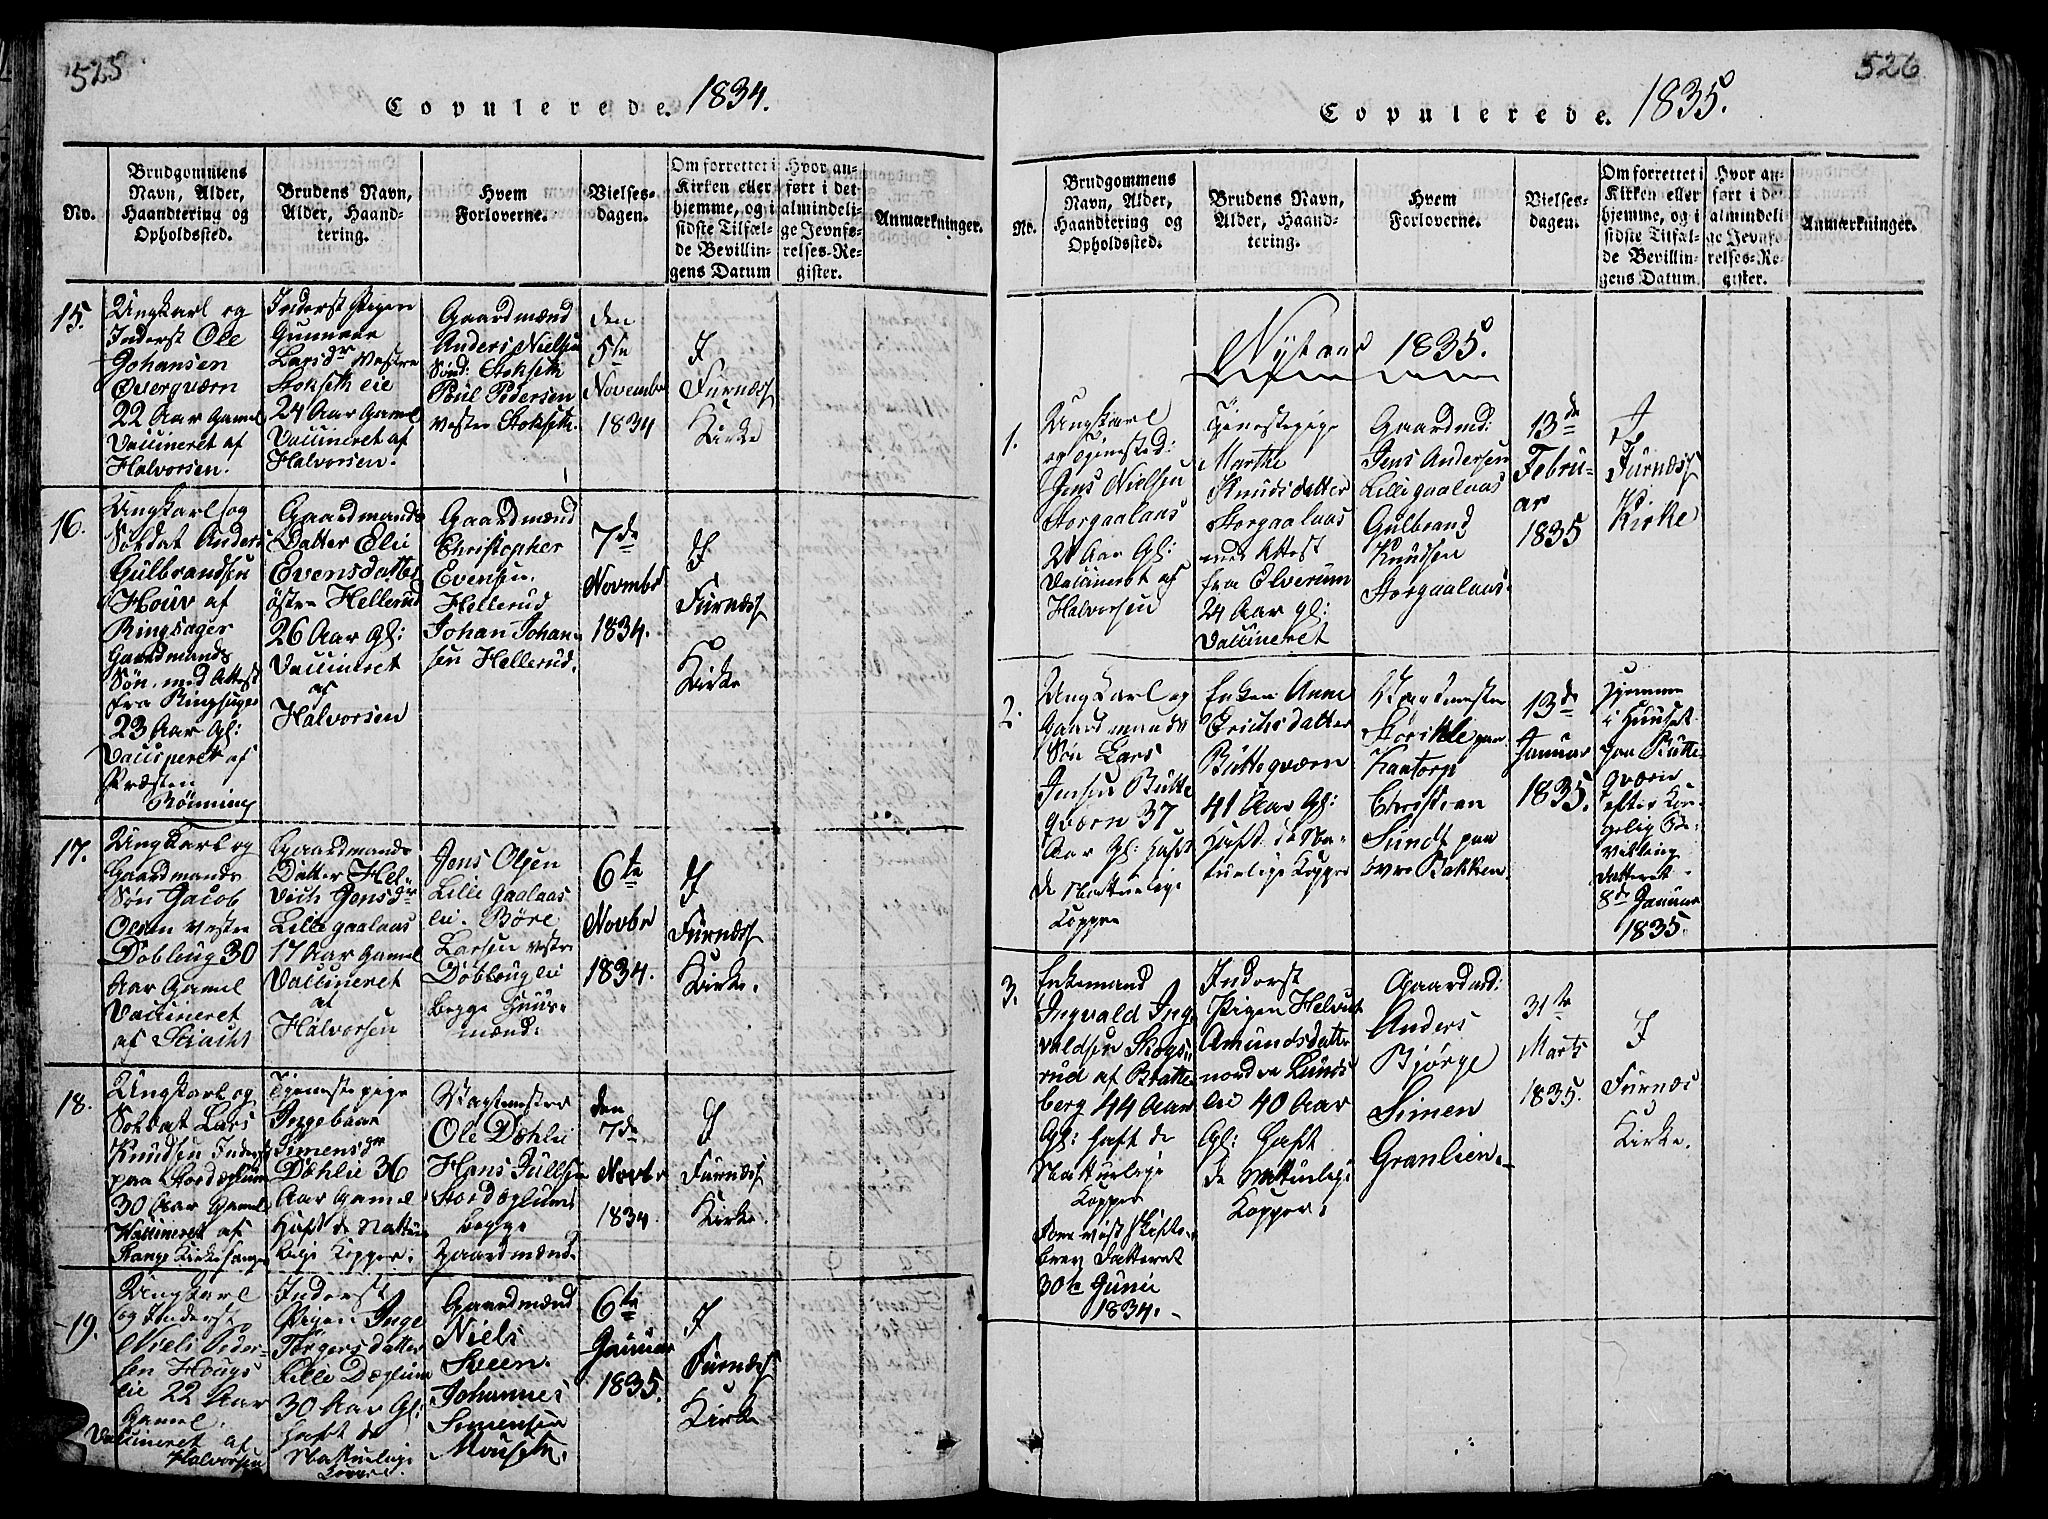 525
Copulerede. 1834.
No.
Brudgommens
Navn, Alder,
Haandtering og
Opholdssted.
Brudens Navn,
Alder, Haand-
tering.
Hvem
Forloverne.
Vielses-
dagen.
Om forrettet i
Kirken eller
hjemme, og i
sidste Tilfæl-
de Bevillin-
gens Datum
Hvor an-
ført i det
almindeli-
ge Jevnfø-
relses-Re-
gister.
Anmærkninger.
15.
Ungkarl og
Inderst Ole
Johansen
Overqværn
22 Aar Gamel
Vaccineret af
Halvorsen.
Inderst Pigen
Larsdr Vestre
Stokseth eie
24 Aar Gamel
Vaccineret af
Halvorsen.
Gaardmænd
Anders Nielsen
Sönd: Stokseth
Poul Pedersen
Vestre Stokseth.
den
5te
November
1834
I
Furnæss
Kirke
16.
Ungkarl og
Soldat Anders
Gulbrandsen
Houv af
Ringsager
Gaardmands
Søn med Attest
fra Ringsager
23 Aar Gl:
Vaccineret af
Præsten
Rönning
Gaardmands
Datter Elie
Evensdatter
östre Hellerud
26 Aar Gl:
Vaccineret
af
Halvorsen
Gaardmænd
Christopher
Evensen
Hellerud
Johan Johan-
sen Hellerud.
7de
Novmbr
1834.
I
Furnæss
Kirke
17.
Ungkarl og
Gaardmands
Søn Jacob
Olsen Vestre
Dobloug 30
Aar Gamel
Vaccineret
af
Gaardmands
Datter Hel-
vich Jensdr
Lille gaalaas
17 Aar Gamel
Vaccineret
af
Halvorsen
Jens Olsen
Lille Gaalaas
eie. Böre
Larsen Vestre
Dobloug eie
begge Huus-
mænd.
6te
Novbr
1834.
I
Furnæss
Kirke.
18.
Ungkarl og
Soldat Lars
Knudsen Inderst
paa Stordæhlum
30 Aar Gamel
Vaccineret af
Kirkesanger
Tjeneste pige
Ingebaar
Simensdr
Dæhlie 36
Aar Gamel
Haft de Nattur-
lige Kopper.
Vagtmester
Ole Dæhlie
Hans Jullsen
begge
Gaardmænd.
den
7de
Novbr
1834.
I
Furnæss
Kirke.
19.
Ungkarl
og Inderst
Niels Peder-
sen Hougs
eie 22 Aar
Gamel.
Vaccineret af
Halvorsen
Inderst
Pigen Inge
Torgersdatter
Lille Dæglum
30 Aar Gl:
haft de
Natturlige
Kopper.
Gaardmænd
Niels
Sveen.
Johannes
Simensen
6te
Januar
1835.
I
Furnæss
Kirke
526
Copulerede. 1835.
No.
Brudgommens
Navn, Alder,
Haandtering og
Opholdssted.
Brudens Navn,
Alder, Haand-
tering.
Hvem
Forloverne.
Vielses-
dagen.
Om forrettet i
Kirken eller
hjemme, og i
sidste Tilfæl-
de Bevillin-
gens Datum
Hvor an-
ført i det
almindeli-
ge Jevnfø-
relses-Re-
gister.
Anmærkninger.
Nyt aar 1835.
1.
Ungkarl
og Tjenested:
Jens Nielsen
Storgaalaas
Aar Gl:
Vaccineret af
Halvorsen
Tjenestepige
Marthe
Knudsdatter
Storgaalaas
med Attest
fra Elverum
24 Aar gl:
Vaccineret
Gaardmd:
Jens Andersen
Lille gaalaas
Gulbrand
Knudsen
Storgaalaas.
13de
Febru-
ar
1835
I
Furnæss
Kirke
2.
Ungkarl og
Gaardmands
Søn Lars
Jensen Butte
qværn 37
Aar Gl: Haft
de Natturlige
Kopper
Enken Anne
Erichsdatter
Butteqværn
41 Aar Gl:
Haft de Na-
turlige Kopper
paa
Kaatorp
Christian
Sundt paa
övre Bakken.
13de
Januar
1835.
Hjemme
i Huuset
paa Butte-
qværn
efter Kon-
gelig Be-
villing
Datteret
8de Januar
1835.
3.
Enkemand
Ingvald Ing-
valdsen Skogs-
rud af Bratte-
berg 44 Aar
Gl: haft de
Natturlige
Kopper
Foreviist Skifte-
brev Datteret
30te Junii
1834.
Inderst
Pigen Helvich
Amundsdatter
nordre Lunds
eie 40 Aar
Gl: haft
de Natturlige
Kopper.
Gaardmd:
Anders
Bjørge
Simen
Granlien.
31te
Marts
1835.
I
Furnæs
Kirke.